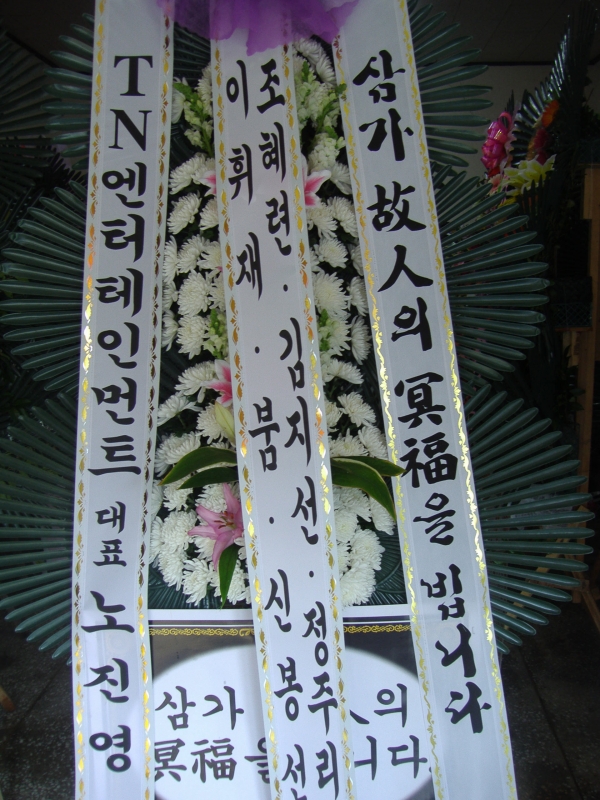 삼가 故人의 冥福을 빕니다
조혜련 · 김지선 · 정주리
이휘재 · 붐 · 신봉선
TN엔터테인먼트 대표 노진영
삼가 의
冥福을 니다.